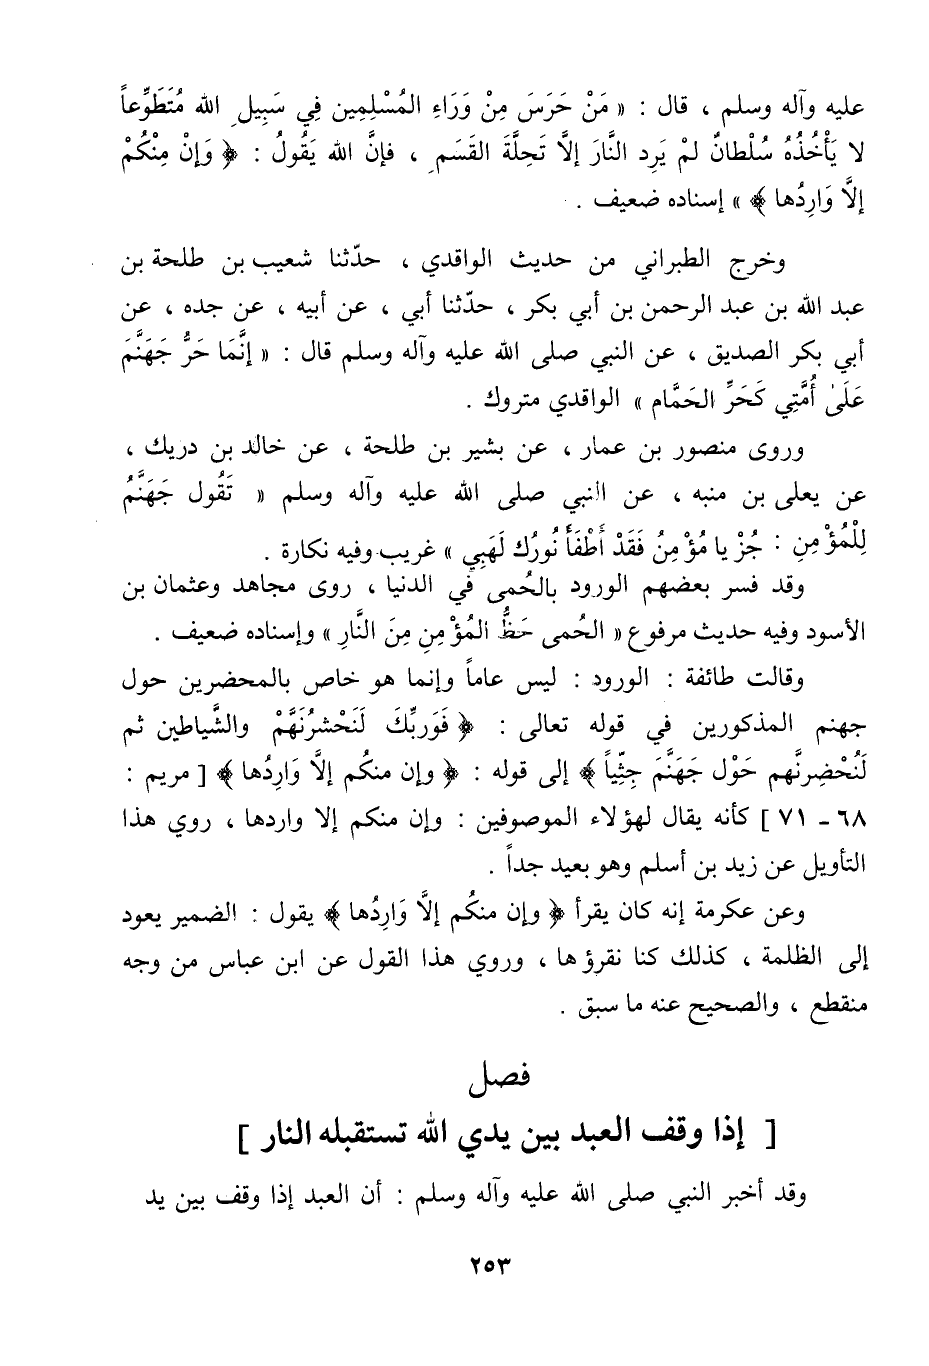 عليه وآله وسلم ، قال : « مَنْ حَرَسَ مِنْ وَرَاءِ المُسْلِمِين فِي سَبِيلِ الله مُتَطَوِّعاً
لا يَأْخُذُهُ سُلْطانٌ لمْ يَرِد النَّارَ إلاَّ تَحِلَّةَ القَسَمِ ، فإنَّ الله يَقُولُ : ﴿ وَإنْ مِنْكُمْ
إلاَّ وَارِدُها ﴾ » إسناده ضعيف .
وخرج الطبراني من حديث الواقدي ، حدّثنا شعيب بن طلحة بن
عبد الله بن عبد الرحمن بن أبي بكر ، حدّثنا أبي ، عن أبيه ، عن جده ، عن
أبي بكر الصديق ، عن النبي صلى الله عليه وآله وسلم قال : « إنَّمَا حَرُّ جَهَنَّمَ
عَلَىٰ أُمَّتِي كَحَرِّ الحَمَّام » الواقدي متروك .
وروى منصور بن عمار ، عن بشير بن طلحة ، عن خالد بن دريك ،
عن يعلى بن منبه ، عن النبي صلى الله عليه وآله وسلم « تَقُول جَهَنَّمُ
لِلْمُؤْمِنِ : جُزْ يا مُؤْمِنُ فَقَدْ أَطْفَأَ نُورُك لَهَبِي » غريب وفيه نكارة .
وقد فسر بعضهم الورود بالحُمى في الدنيا ، روى مجاهد وعثمان بن
الأسود وفيه حديث مرفوع « الحُمى حَظُّ المُؤْمِنِ مِنَ النَّارِ » وإسناده ضعيف .
وقالت طائفة : الورود : ليس عاماً وإنما هو خاص بالمحضرين حول
جهنم المذكورين في قوله تعالى : ﴿ فَوَرِبِّكَ لَنَحْشرُنَهَّمْ والشَّياطين ثم
لَنُحْضِرنَّهم حَوْل جَهَنَّمَ جِثِّياً ﴾ إلى قوله : ﴿ وإن منكُم إلاَّ وَارِدُها ﴾ [ مريم :
٦٨ - ٧١ ] كأنه يقال لهؤلاء الموصوفين : وإن منكم إلا واردها ، روي هذا
التأويل عن زيد بن أسلم وهو بعيد جداً .
وعن عكرمة إنه كان يقرأ ﴿ وإن منكُم إلاَّ وَارِدُها ﴾ يقول : الضمير يعود
إلى الظلمة ، كذلك كنا نقرؤها ، وروي هذا القول عن ابن عباس من وجه
منقطع ، والصحيح عنه ما سبق .
فصل
[ إذا وقف العبد بين يدي الله تستقبله النار ]
وقد أخبر النبي صلى الله عليه وآله وسلم : أن العبد إذا وقف بين يد
٢٥٣